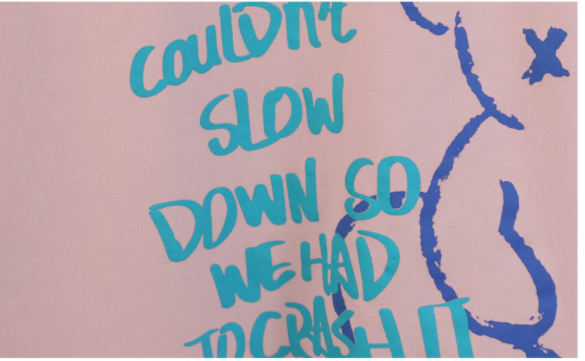 COULDN't
SLOW
DOWN SO
WE HAD
TO CRASH IT